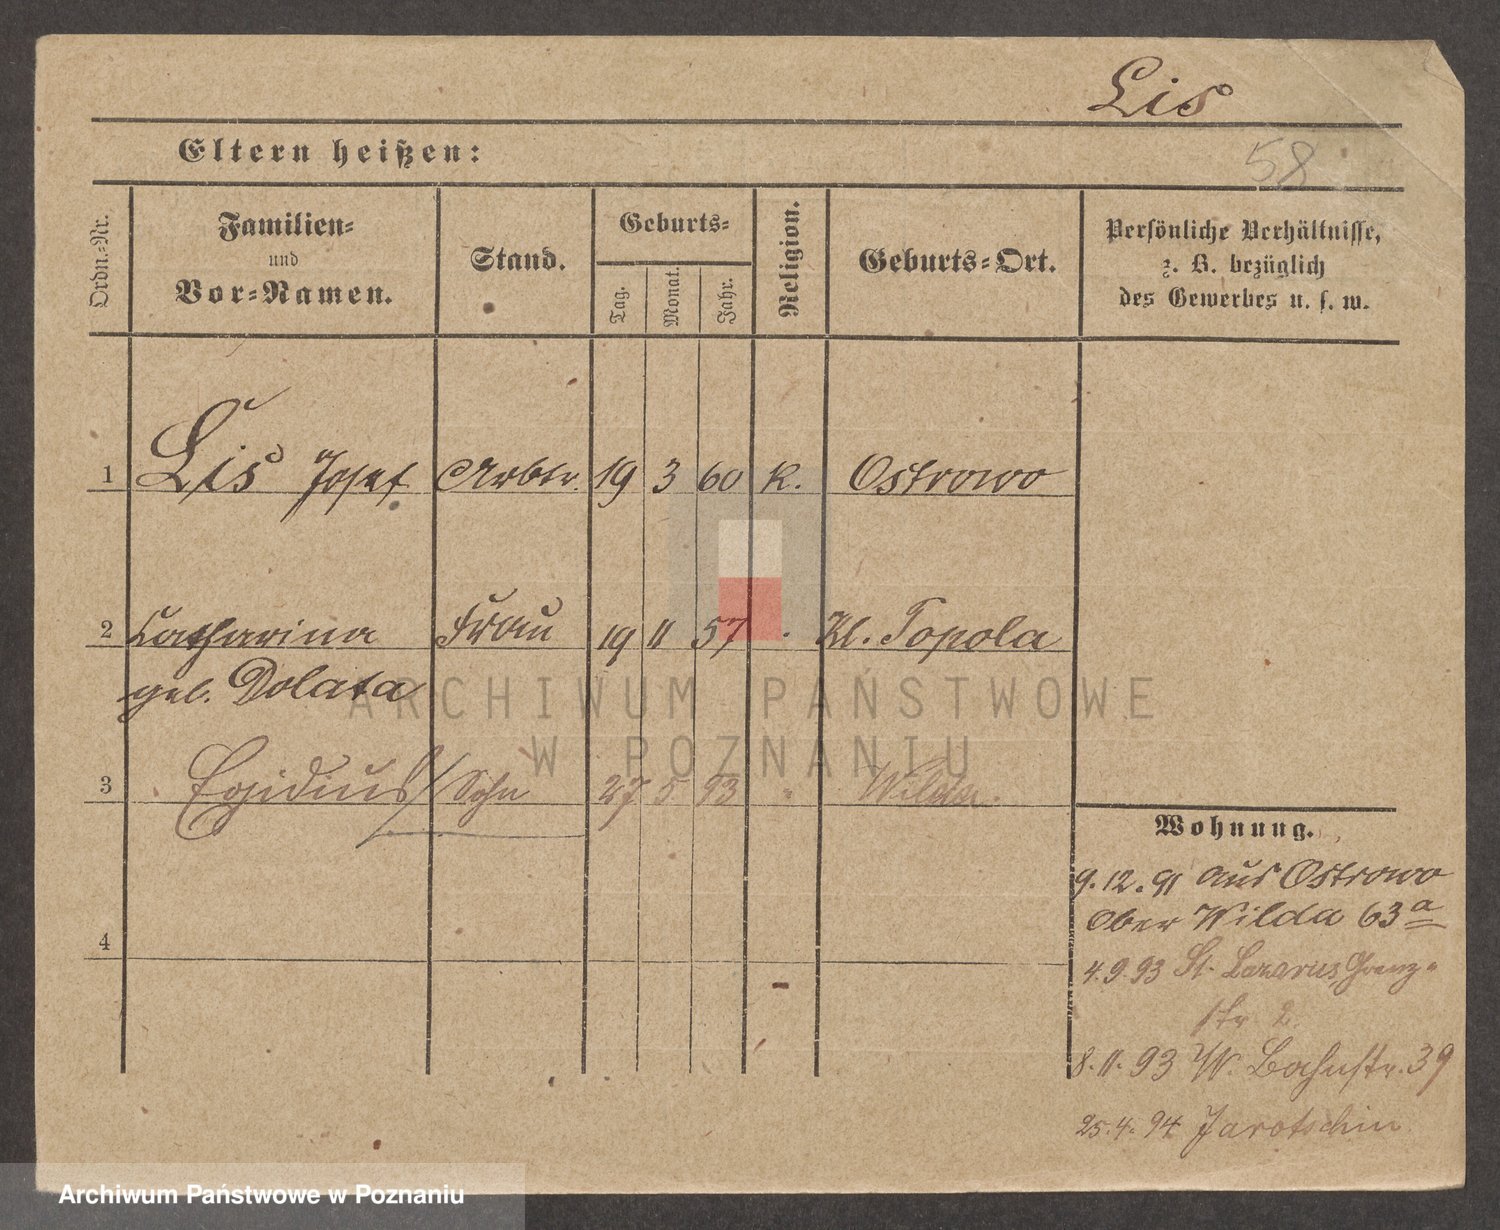 Lis
58
Eltern heißen:
Ordn.-Nr.
Familien-
und
Vor-Namen.
Stand.
Geburts-
Tag.
Monat.
Jahr.
Religion.
Geburts-Ort.
Persönliche Verhältnisse,
z. B. bezüglich
des Gewerbes u. s. w.
1 Lis Josef Arbtr. 19 3 60 K. Ostrowo
2 Catharina Frau 19 11 57 " Kl. Topola
geb. Dolata
3 Egidius Sohn 27 5 93 " Wilda.
4
Wohnung.
9.12.91 aus Ostrowo
Ober Wilda 63 a
4.9.93 St. Lazarus, Grenz-
str 2.
8.11.93 W. Bahnstr. 39
25.4.94 Jarotschin
ARCHIWUM PAŃSTWOWE
W POZNANIU
Archiwum Państwowe w Poznaniu